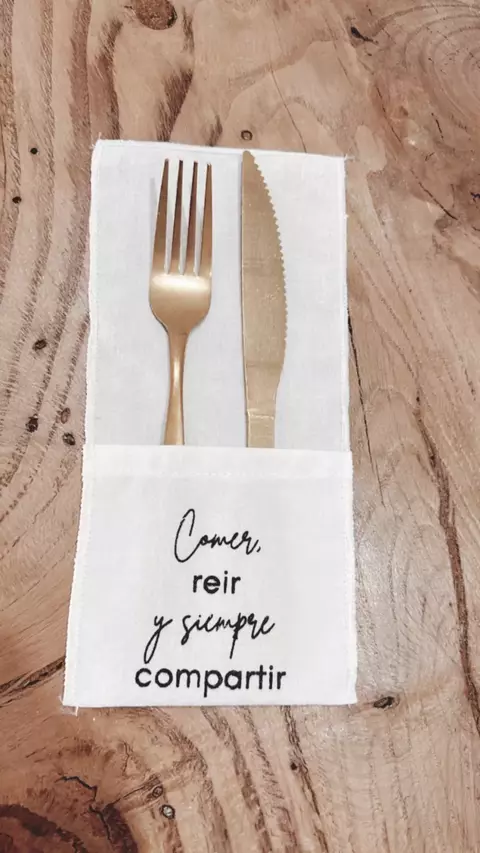 Comer,
reir
y siempre
compartir